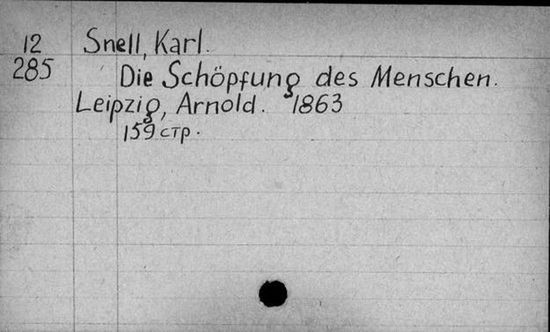 12 Snell, Karl.
285 Die Schöpfung des Menschen.
Leipzig, Arnold. 1863
159 стр.